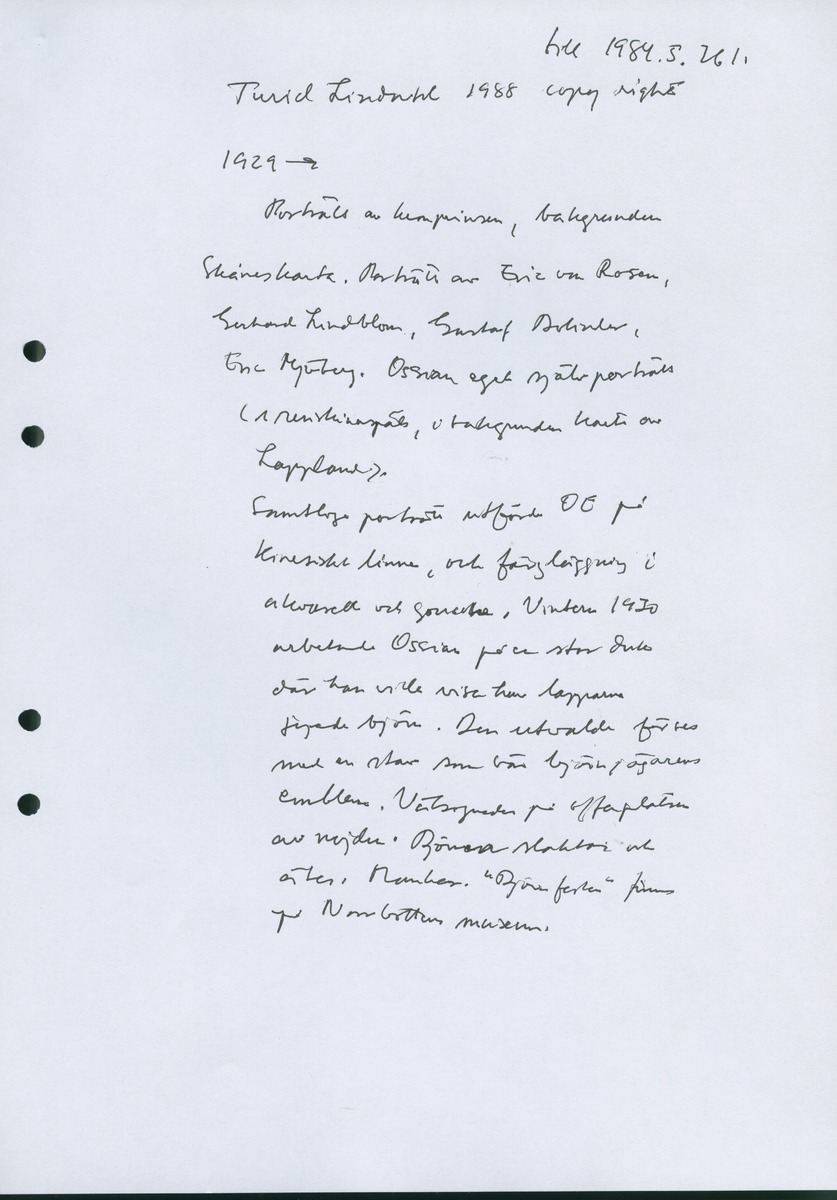 till 1984.5.261.
Turid Lindvall 1988 copy right
1929 →
Porträtt av kronprinsen, bakgrunden
Skåneskarta. Porträtt av Eric von Rosen,
Gerhard Lindblom, Gustaf Bolinder,
Eric Mjöberg. Ossian eget självporträtt
(i renskinnspäls, i bakgrunden karta av
Lappland).
Samtliga porträtt utförde OE på
kinesiskt linne, och färgläggning i
akvarell och gouache. Vintern 1930
arbetade Ossian på en stor duk
där han ville visa hur lapparna
jagade björn. Den utvalde förses
med en stav som bär björnjägarens
emblem. Välsignades på offerplatsen
av nåjden. Björnen slaktas och
ätes. "Björnfesten" finns
på Norrbottens museum.